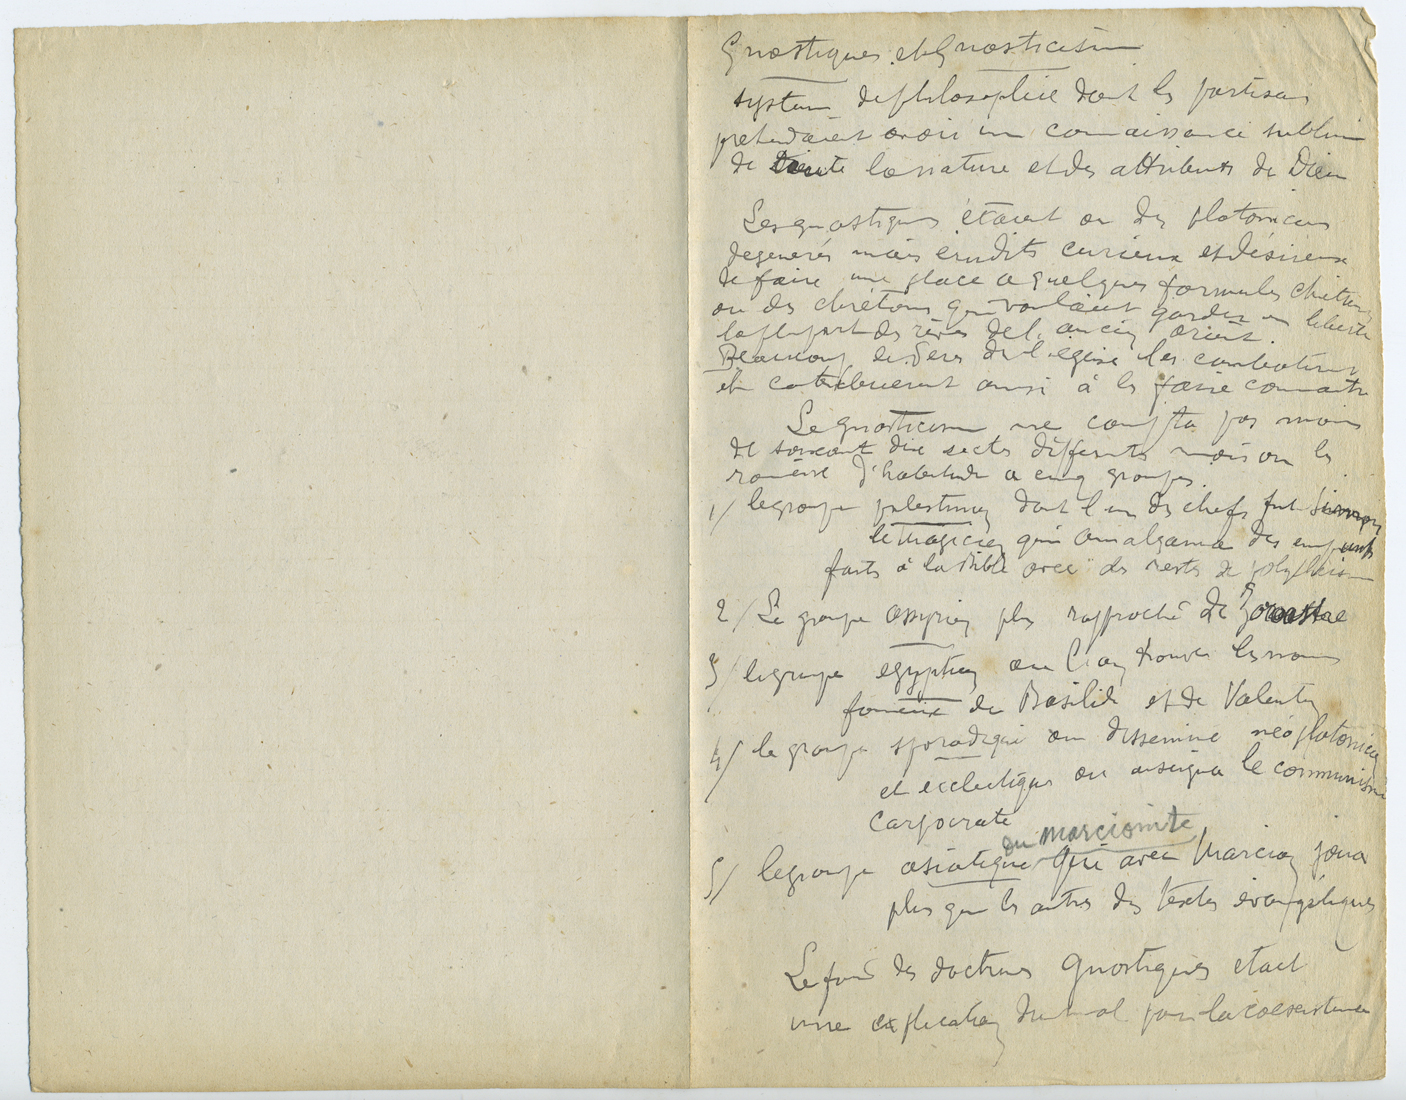 Gnostiques et Gnosticisme
système de philosophie dont les partisans
pretendaient avoir une connaissance sublime
de toute la nature et des attributs de Dieu
Les gnostiques étaient ou des platoniciens
degenerés mais érudits curieux et désireux
de faire une place a quelques formules chrétiennes
ou des chrétiens qui voulaient garder en liberté
la plupart des rêves de l'ancien orient.
Beaucoup de Peres de l'église les combattirent
et contribuerent ainsi à les faire connaitre
Le gnosticisme ne compta pas moins
de soixante dix sectes différentes mais on les
ramène d'habitude a cinq groupes.
1/ le groupe palestinien dont l'un des chefs fut Simon
le Magicien qui amalgama des emprunts
faits à la Bible avec des restes de polythéisme
2/ Le groupe assyrien plus rapproché de Zoroastre
3/ le groupe egyptien ou l'on trouve les noms
fameux de Basilide et de Valentin
4/ le groupe sporadique ou disseminé néoplatonicien
et ecclectique ou enseigna le communiste
Carpocrate
ou marcionite
5/ le groupe asiatique qui avec Marcion joua
plus que les autres des textes évangéliques
Le fond des doctrines gnostiques etait
une explication du mal par la coexistence